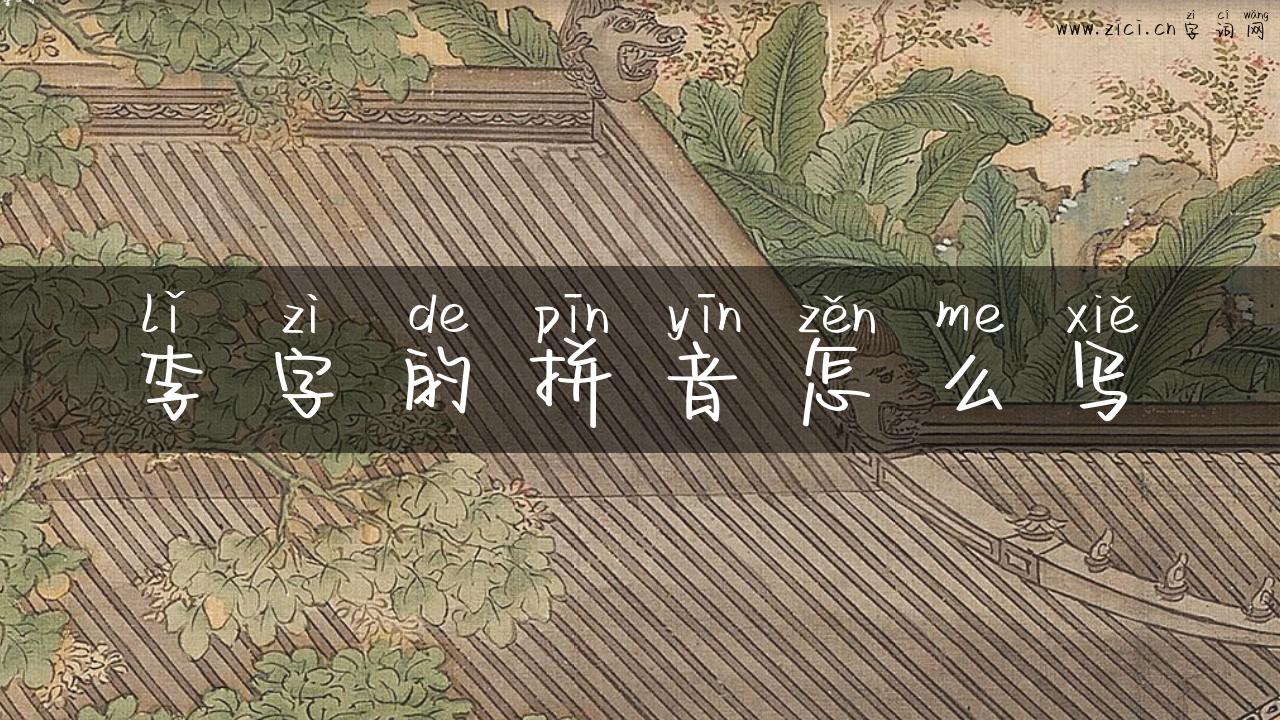 zì cí wǎng
www.zici.cn 字词网
lǐ zì de pīn yīn zěn me xiě
李字的拼音怎么写